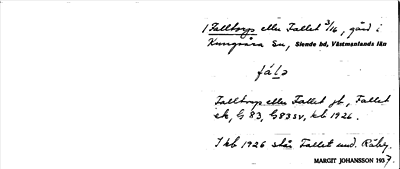 1 Falltorp eller Fallet 3/16, gård i
Kungsåra Sn, Siende hd, Västmanlands län
fála
Falltorp eller Fallet jb, Fallet
ek, G 83, G83 sv, kb 1926.
I kb 1926 står Fallet und. Råby.
MARGIT JOHANSSON 1937.